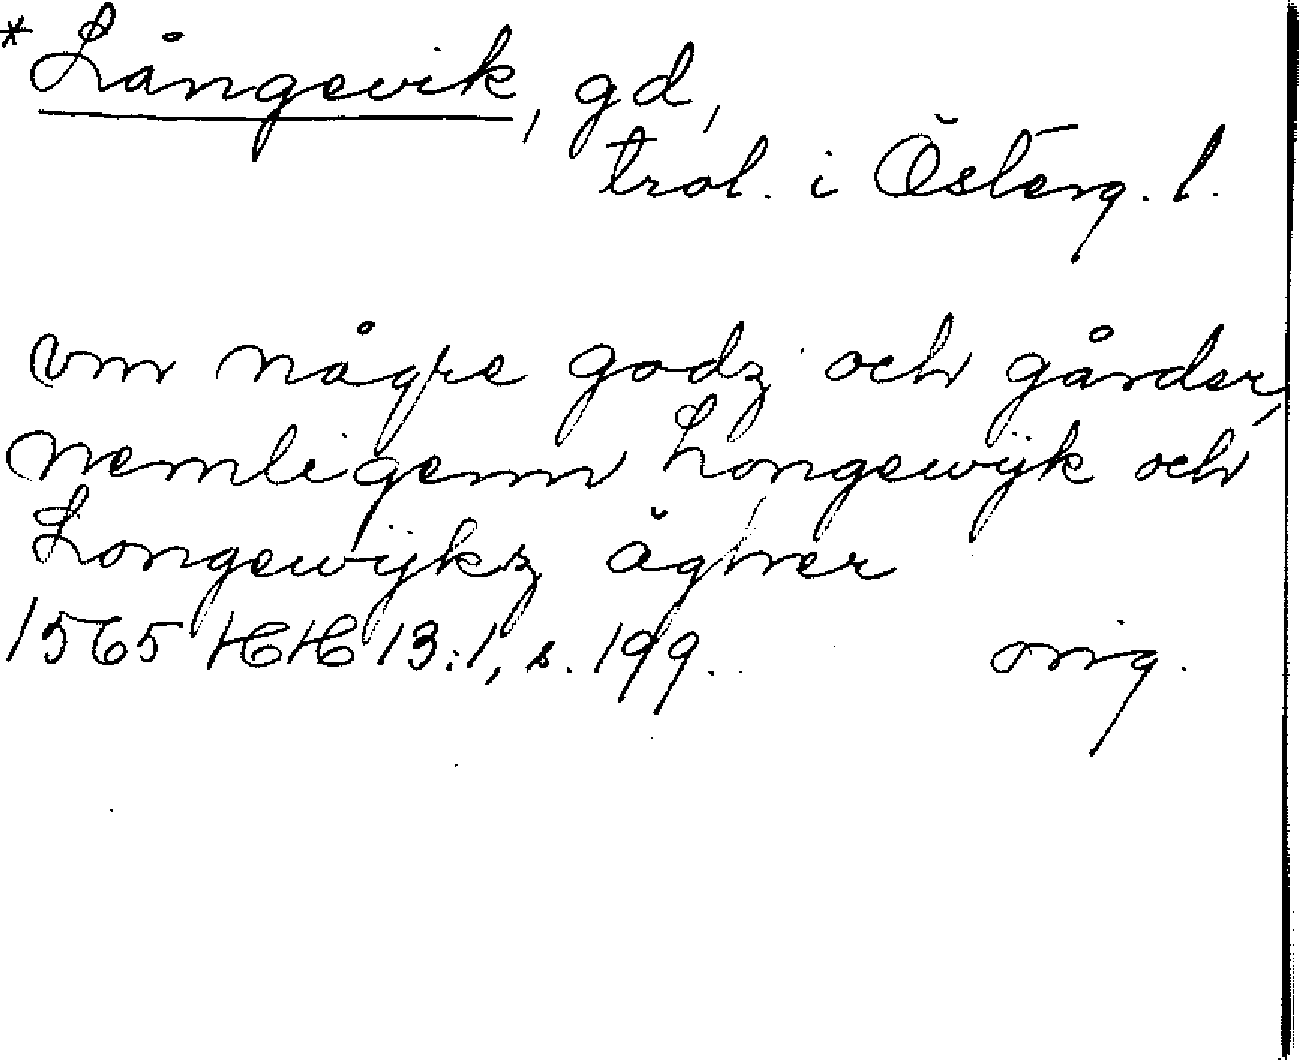 *Långevik, gd,
trol. i Österg. l.
vm någre godz och gårder,
nemligenn Longewijk och
Longewijkz ägher
1565 HH 13:1, s. 199. orig.